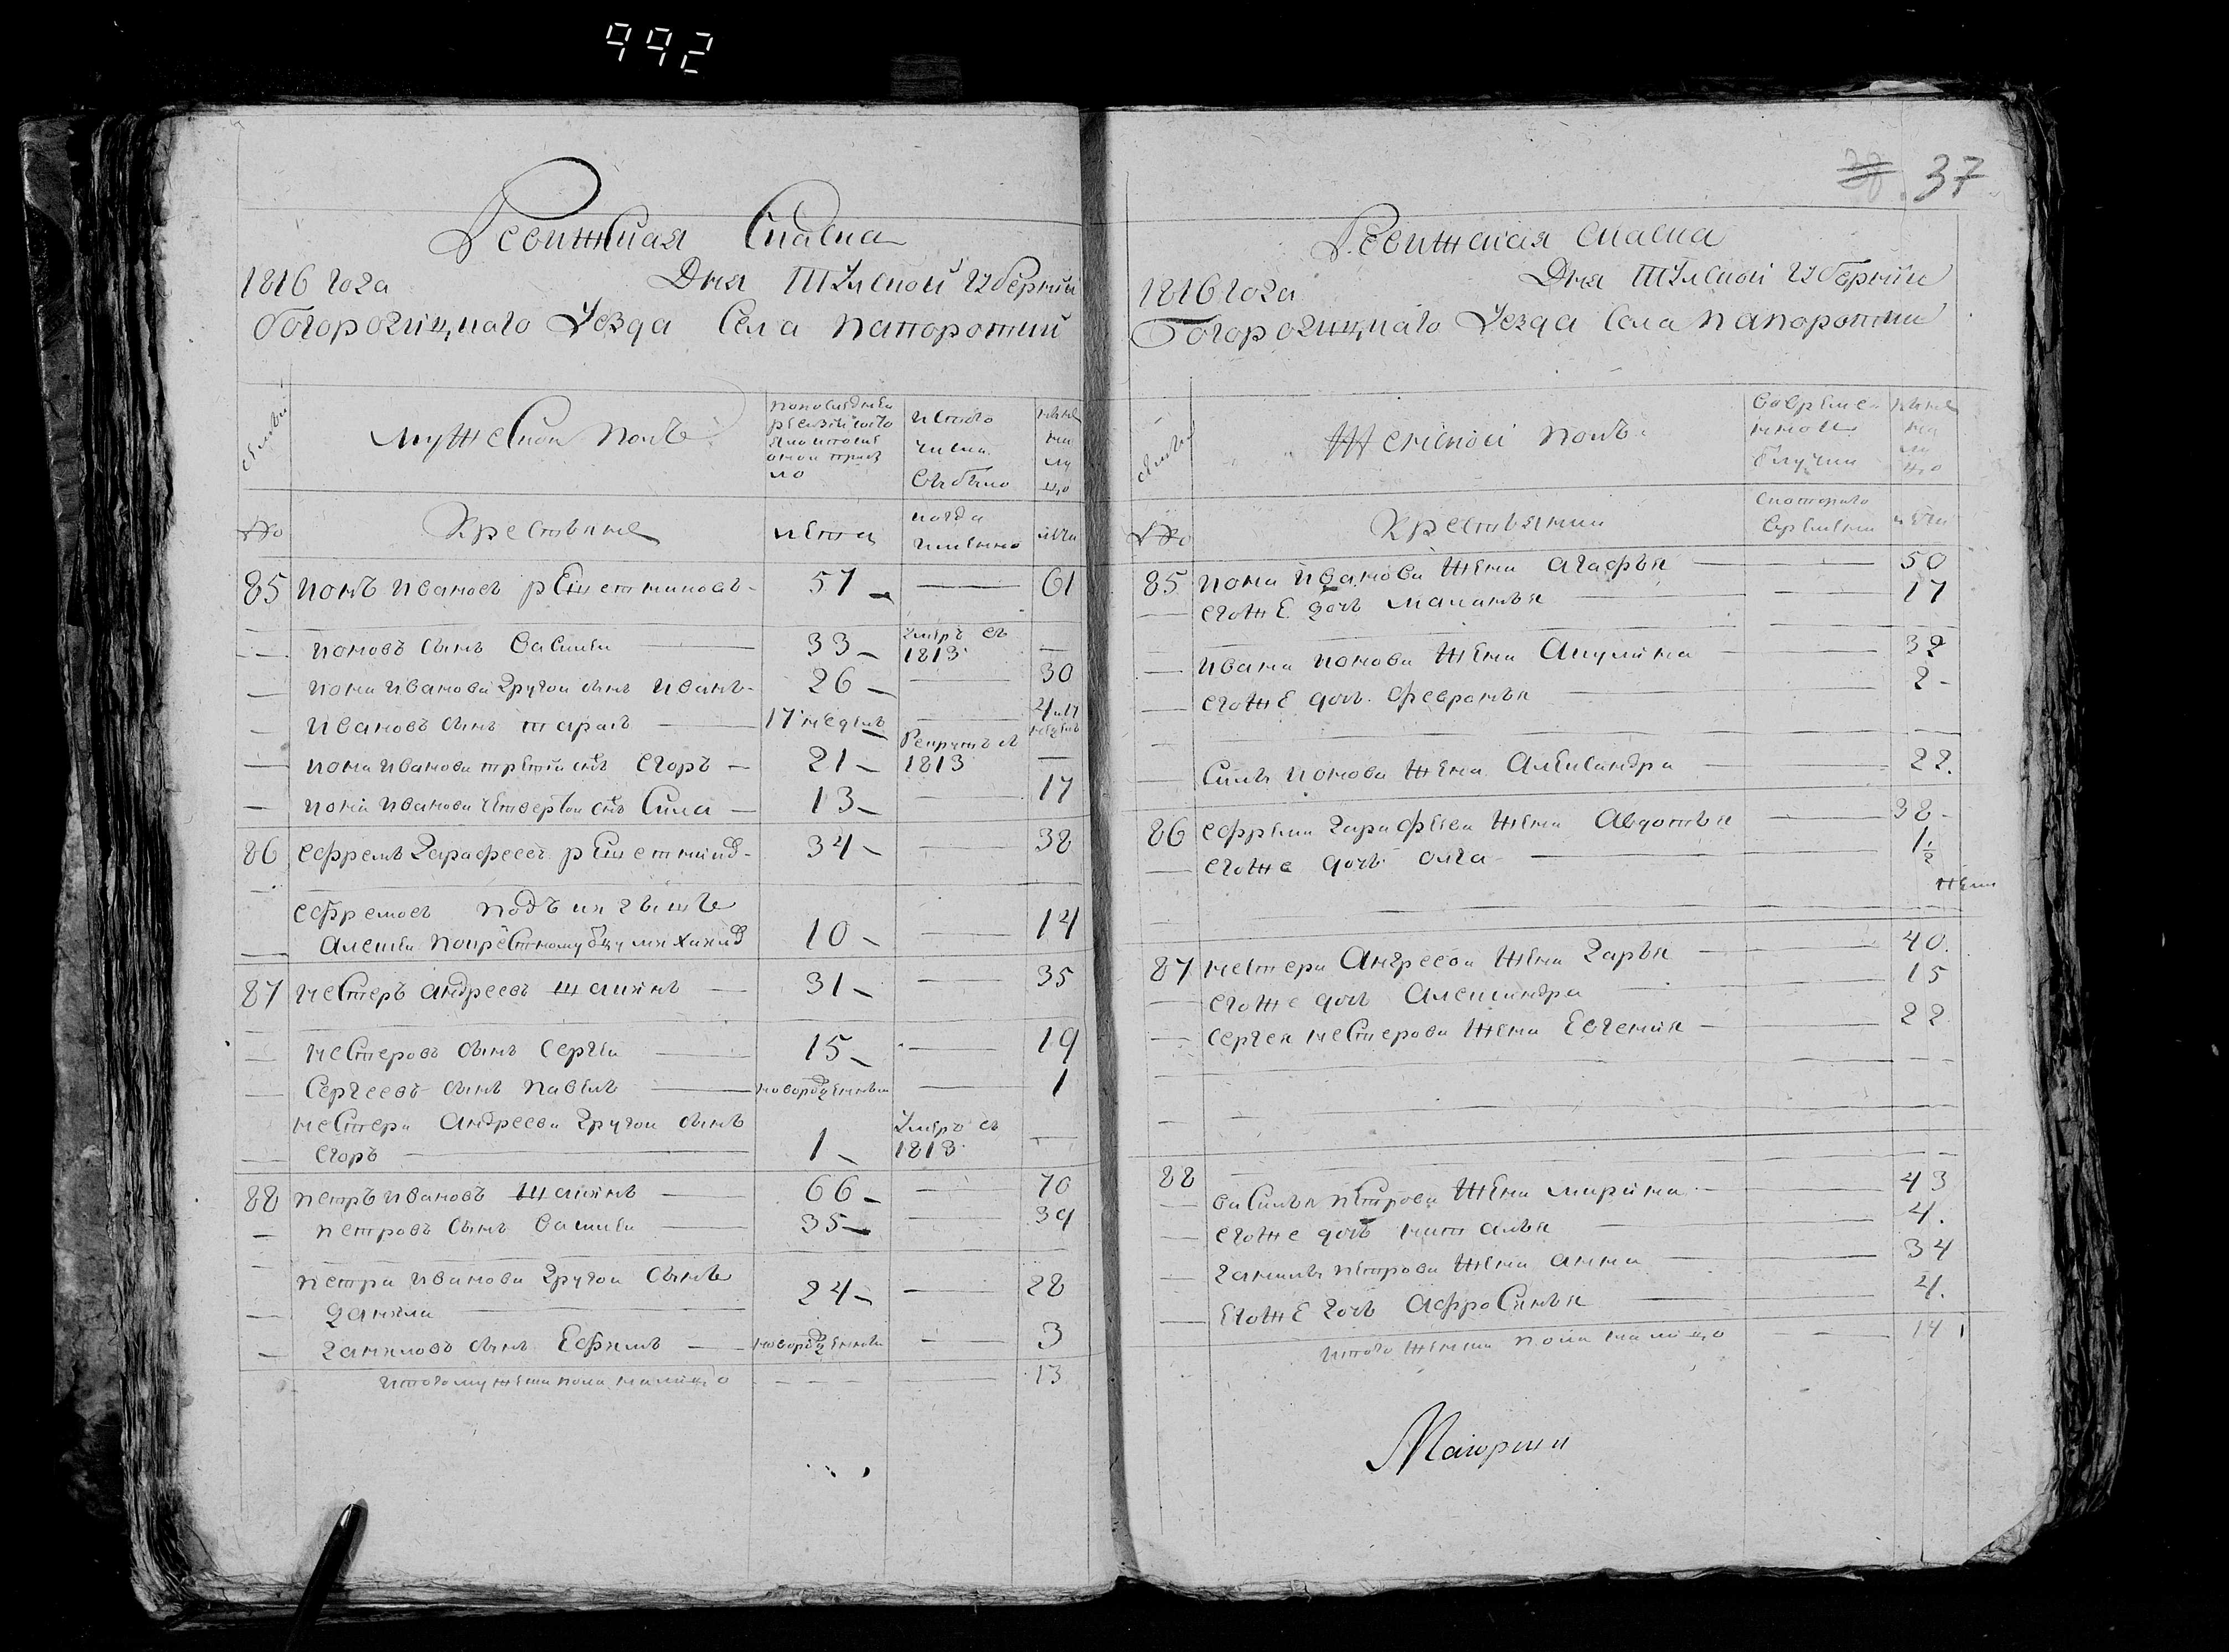 992
Ревижская Скаска
1816 года Дня Тульской Губернiи
Богородицкаго Уезда Села папоротки
семьи
мужескои полъ
попоследнеи
ревизiи состо
яло и после
оной прибы
ло
изтого
числа
выбыло
ныне
на
ли
цо
No
Крестьяне
лета
когда
имянно
лета
85 кононъ Ивановъ 57 — 61
кононовъ сынъ василеи 33 умеръ въ
1813 —
конона Иванова другои сынъ Иванъ 26 — 30
Ивановъ сынъ тарасъ 17 недель — 4 и 17
недель
конона Иванова третiи сынъ Егоръ 21 Рекрутъ въ
1813 —
конона Иванова четвертои сынъ Сила 13 — 17
86 ефремъ дарафеевъ 34 — 38
ефремовъ
алексеи 10 — 14
87 нестеръ андреевъ шашкинъ 31 — 35
нестеровъ сынъ сергеи 15 — 19
Сергеевъ сынъ павелъ новорожденныи — 1
нестера Андреева другои сынъ
егоръ 1 умеръ въ
1813 —
88 петръ ивановъ шашкинъ 66 — 70
петровъ сынъ василеи 35 — 39
петра иванова другои сынъ
данила 24 — 28
даниловъ сынъ Ефимъ новорожденныи — 3
итого мужеска пола налицо 13
37
Ревижская скаска
1816 года Дня Тульскои Губернiи
Богородицкаго Уезда Села папоротки
семьи
Женскои полъ
вовреме
нной
отлучки
ныне
на
ли
цо
No
Крестьянки
скоторого
времени
лета
85 конона Иванова жена агафья — 50
егоже дочь маланья — 17
ивана кононова жена Акулина — 32
егоже дочь февронья — 2
силы кононова жена Александра — 22
86 ефрема дарафеева жена Авдотья — 38
егоже дочь олга — 1 1/2
87 нестера Андреева жена дарья — 40
егоже дочь Александра — 15
сергея нестерова жена Евгения — 22
88
василья петрова жена марина — 43
егоже дочь наталья — 4
данилы петрова жена анна — 34
егоже дочь Афросинья — 4
итого женска пола налицо — 14